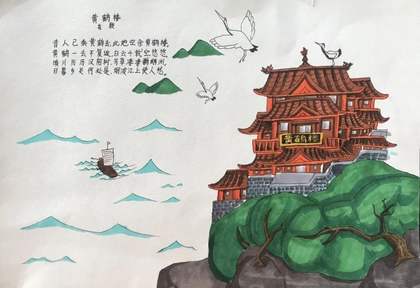 黄鹤楼
崔颢
昔人已乘黄鹤去,此地空余黄鹤楼。
黄鹤一去不复返,白云千载空悠悠。
晴川历历汉阳树,芳草萋萋鹦鹉洲。
日暮乡关何处是,烟波江上使人愁。
黄鹤楼